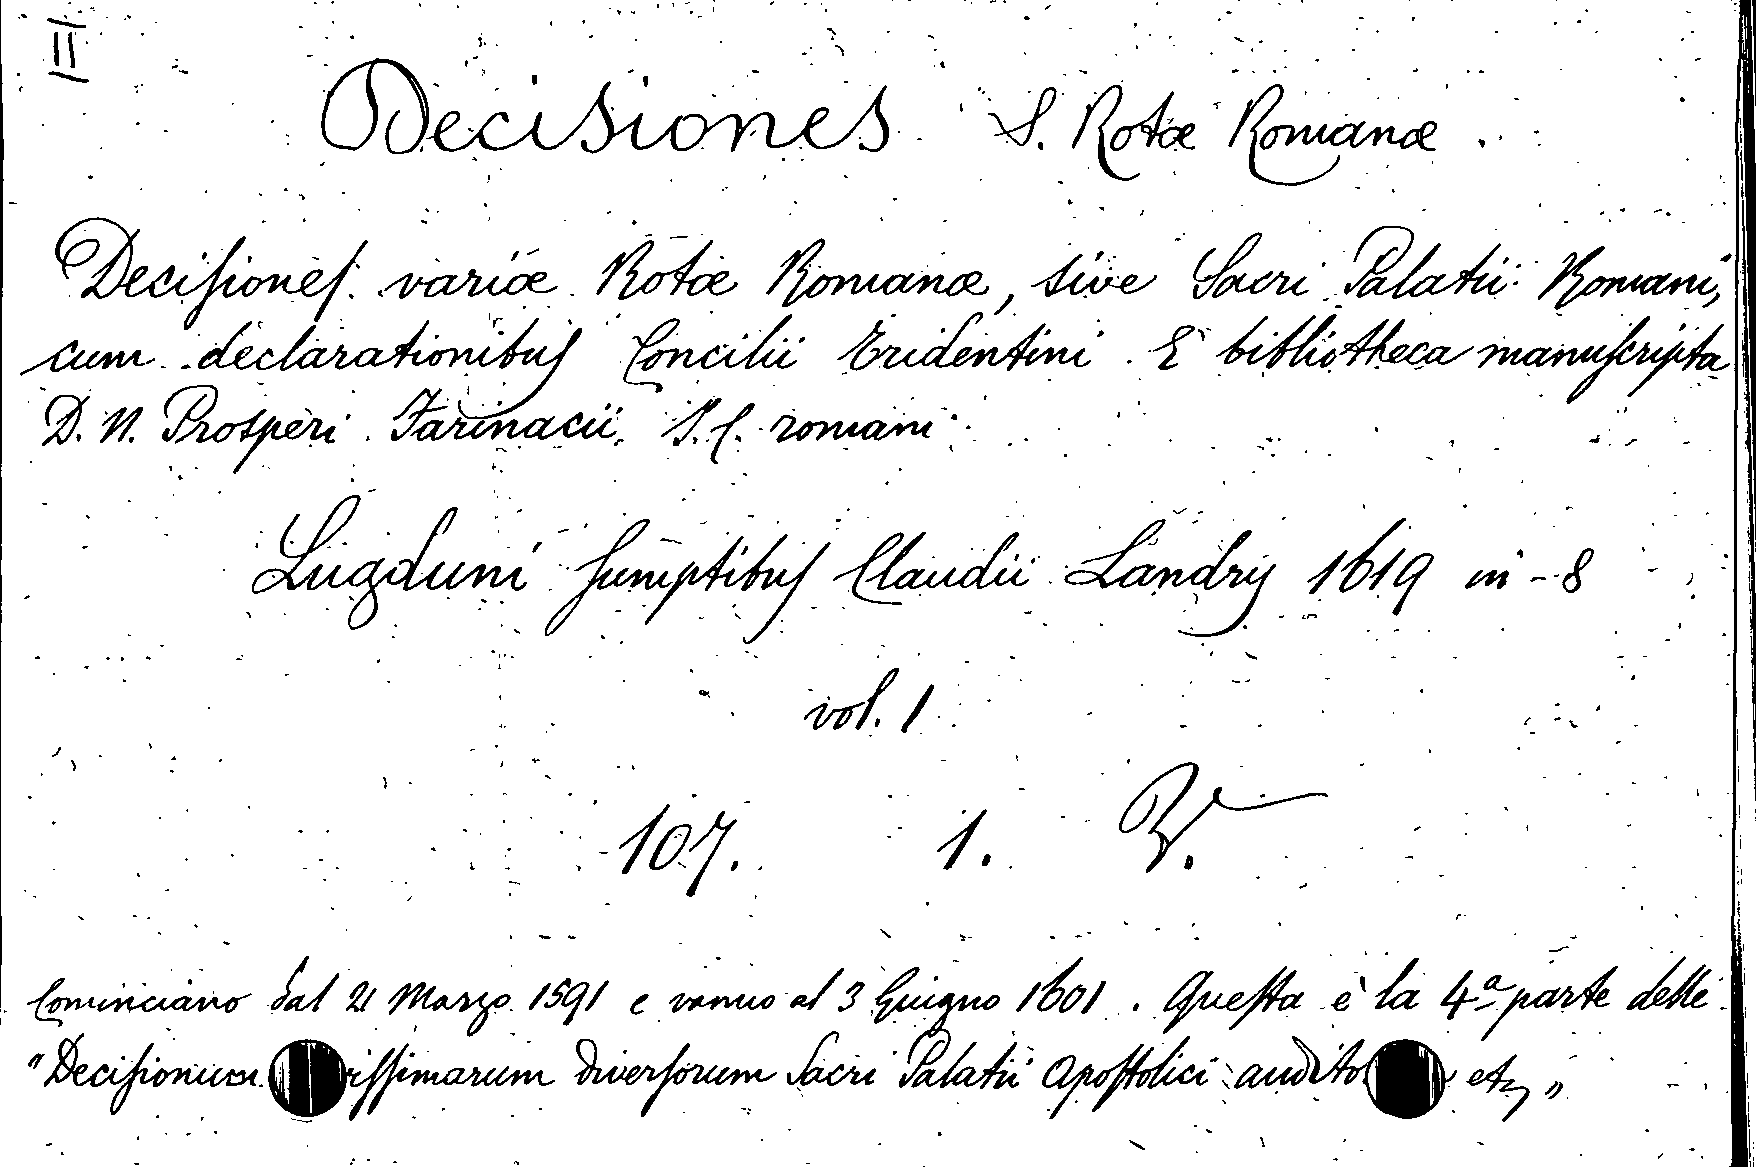 II
Decisiones S. Rotæ Romanæ.
Decisiones variæ Rotæ Romanæ, sive Sacri Palatii Romani,
cum declarationibus Concilii Tridentini. E bibliotheca manuscripta
D. N. Prosperi Farinacii, J. C. romani
Lugduni sumptibus Claudii Landry 1619 in-8
vol. 1
107. 1. V.
Cominciano dal 21 Marzo 1591 e vanno al 3 Giugno 1601. Questa è la 4ª parte delle
"Decisionum issimarum diversorum Sacri Palatii Apostolici audito etz"